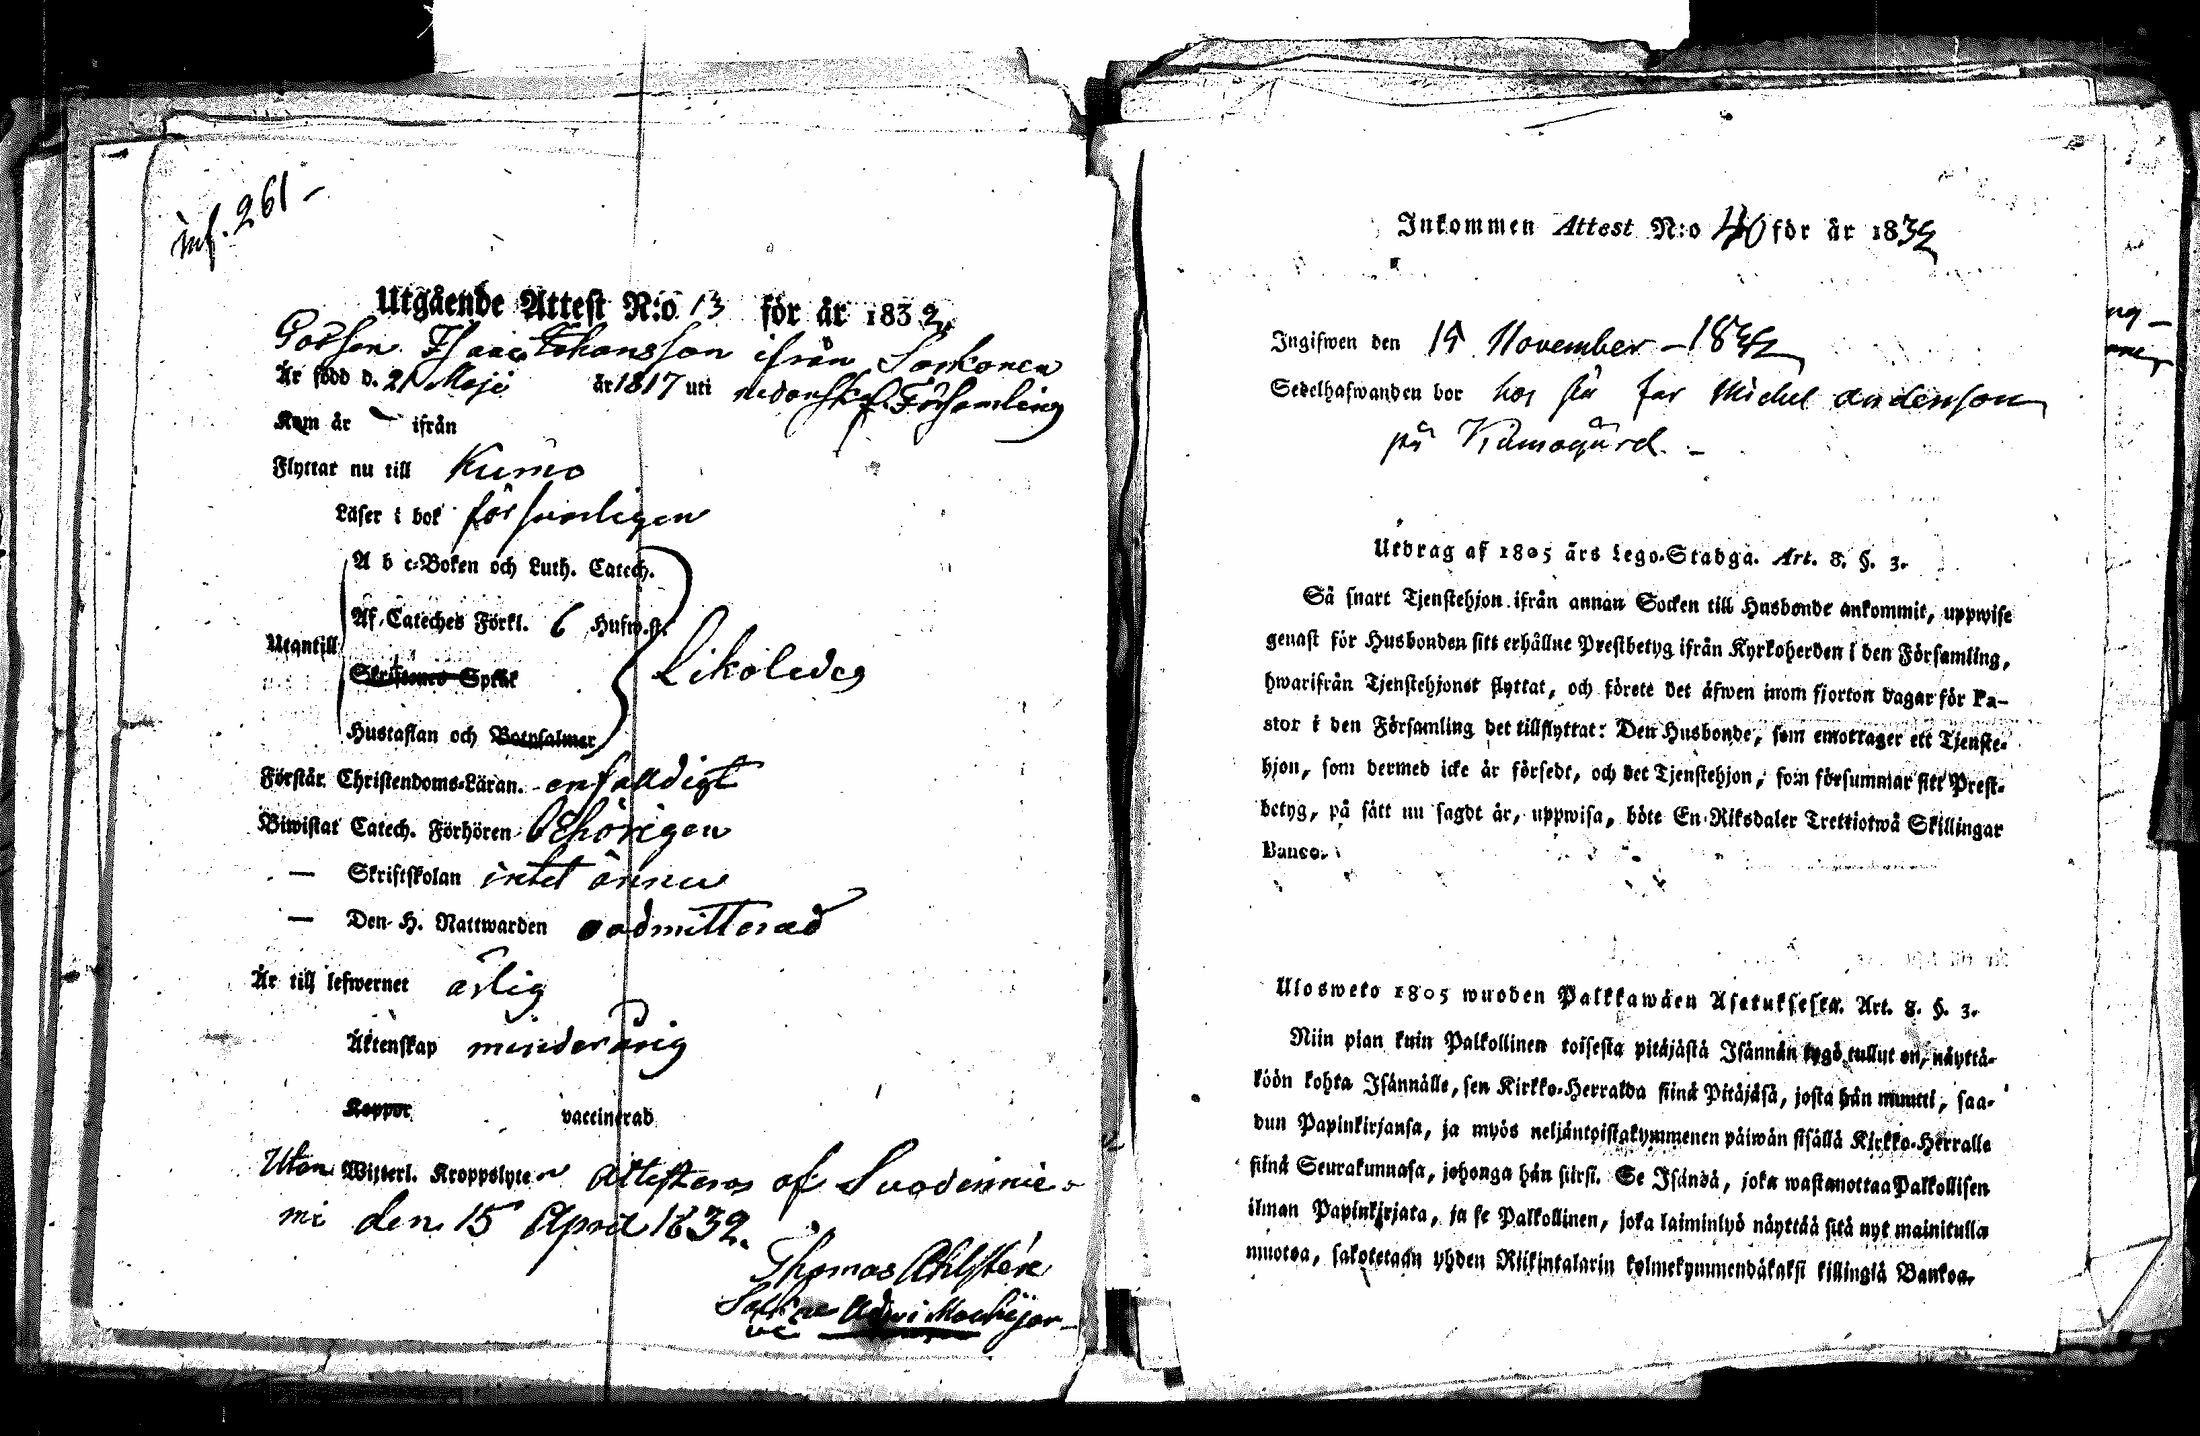 inf. 261 –
Utgående Attest N:o 13 för år 1832
Gossen Isaac Johansson ifrån Sorkonen
Är född d. 21 Maji år 1817 uti nedanskr. Församling
Kom år – ifrån
Flyttar nu till Kumo
Läser i bok försvarligen
A b c-Boken och Luth. Catech.
Af Cateches Förkl. 6 Hufw.st.
Utantill
Skriftenes Språk
Likoledes
Hustaflan och Botpsalmer
Förstår Christendoms-Läran. enfalldigt
Biwistat Catech. Förhören behörigen
— Skriftskolan intet ännu
— Den H. Nattwarden oadmitterad
Är till lefwernet ärlig
Äktenskap minderårig
Koppor vaccinerad
Utan Witterl. Kroppslyte Attesteras af Suodennie-
mi den 15 April 1832.
Thomas Ahlstén
Inkommen Attest N:o 40 för år 1832
Ingifwen den 19 November – 1832
Sedelhafwanden bor hos sin far Michel Andersson
på Kumogård. –
Utdrag af 1805 års Lego-Stadga. Art. 8. §. 3.
Så snart Tjenstehjon ifrån annan Socken till Husbonde ankommit, uppwise
genast för Husbonden sitt erhållne Prestbetyg ifrån Kyrkoherden i den Församling,
hwarifrån Tjenstehjonet flyttat, och förete det äfwen inom fjorton dagar för Pa-
stor i den Församling det tillflyttat: Den Husbonde, som emottager ett Tjenste-
hjon, som dermed icke är försedt, och det Tjenstehjon, som försummar sitt Prest-
betyg, på sätt nu sagdt är, uppwisa, böte En Riksdaler Trettiotwå Skillingar
Banco.
Ulosweto 1805 wuoden Palkkawäen Asetuksesta. Art. 8. §. 3.
Niin pian kuin Palkollinen toisesta pitäjästä Isännän tygö tullut on, näyttä-
köön kohta Isännälle, sen Kirkko-Herralda siinä Pitäjäsä, josta hän muutti, saa-
dun Papinkirjansa, ja myös neljäntoistakymmenen päiwän sisällä Kirkko-Herralle
siinä Seurakunnasa, johonga hän siirsi. Se Isändä, joka wastanottaa Palkollisen
ilman Papinkirjata, ja se Palkollinen, joka laiminlyö näyttää sitä nyt mainitulla
muotoa, sakotetaan yhden Riikintalarin kolmekymmendäkaksi killingiä Bankoa.